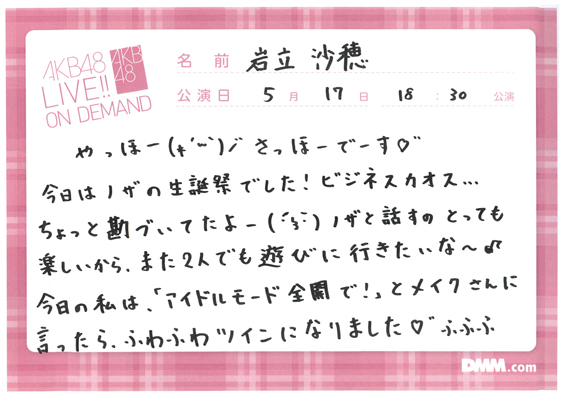 AKB48
LIVE!!
ON DEMAND
AKB
48
名前 岩立 沙穂
公演日 5月 17日 18:30 公演
やっほー(*´˘`)ﾉ゛さっほーでーす♡゛
今日はノザの生誕祭でした!ビジネスカオス...
ちょっと勘づいてたよー(´3`)ノザと話すの とっても
楽しいから、また2人でも遊びに行きたいな〜♫
今日の私は、「アイドルモード全開で!」とメイクさんに
言ったら、ふわふわツインになりました♡゛ふふふ
DMM.com